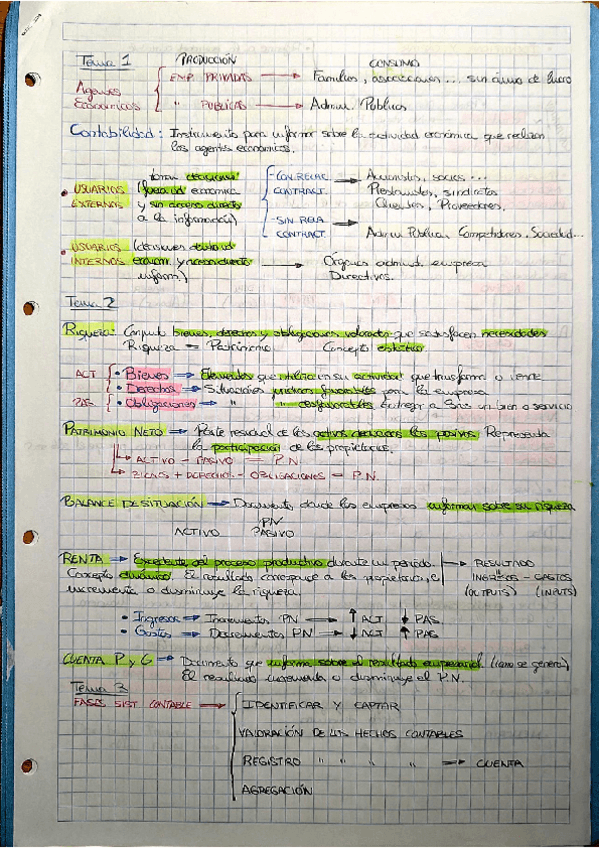 Tema 1 PRODUCCIÓN CONSUMO
Agentes Económicos EMP. PRIVADAS → Familias, asociaciones ... sin ánimo de lucro
" PÚBLICAS → Admin. Pública
Contabilidad: Instrumento para informar sobre la actividad económica que realizan
los agentes económicos.
USUARIOS EXTERNOS
tomar decisiones
(fuera ud económica
y sin acceso directo
a la información)
- CON RELAC. CONTRACT. → Accionistas, socios ...
Prestamistas, sindicatos
Clientes, Proveedores.
- SIN RELA. CONTRACT. → Admin Pública. Competidores. Sociedad...
USUARIOS INTERNOS
(decisiones dentro ud
econom. y acceso directo
inform.)
→ Órganos administ. empresa
Directivos.
Tema 2
Riqueza: Conjunto bienes, derechos y obligaciones valorados que satisfacen necesidades
Riqueza = Patrimonio Concepto estático
ACT • Bienes → Elementos que utiliza en su actividad que transforma o vende
• Derechos → Situaciones jurídicas favorables para la empresa
PAS • Obligaciones → " " desfavorables entregar a 3ros un bien o servicio
PATRIMONIO NETO → Parte residual de los activos deducidos los pasivos. Representa
la participación de los propietarios.
→ ACTIVO - PASIVO = P.N.
→ BIENES + DERECHO - OBLIGACIONES = P.N.
BALANCE DE SITUACIÓN → Documento donde las empresas informan sobre su riqueza
PN
ACTIVO PASIVO
RENTA → Excedente del proceso productivo durante un periodo. → RESULTADO
Concepto dinámico. El resultado corresponde a los propietarios, e INGRESOS - GASTOS
incrementa o disminuye la riqueza. (OUTPUTS) (INPUTS)
• Ingresos → Incrementos PN → ↑ ACT ↓ PAS
• Gastos → Decrementos PN → ↓ ACT ↑ PAS
CUENTA P y G → Documento que informa sobre el resultado empresarial (como se generó)
El resultado incrementa o disminuye el P.N.
Tema 3
FASES SIST CONTABLE → IDENTIFICAR Y CAPTAR
VALORACIÓN DE LOS HECHOS CONTABLES
REGISTRO " " " " → CUENTA
AGREGACIÓN